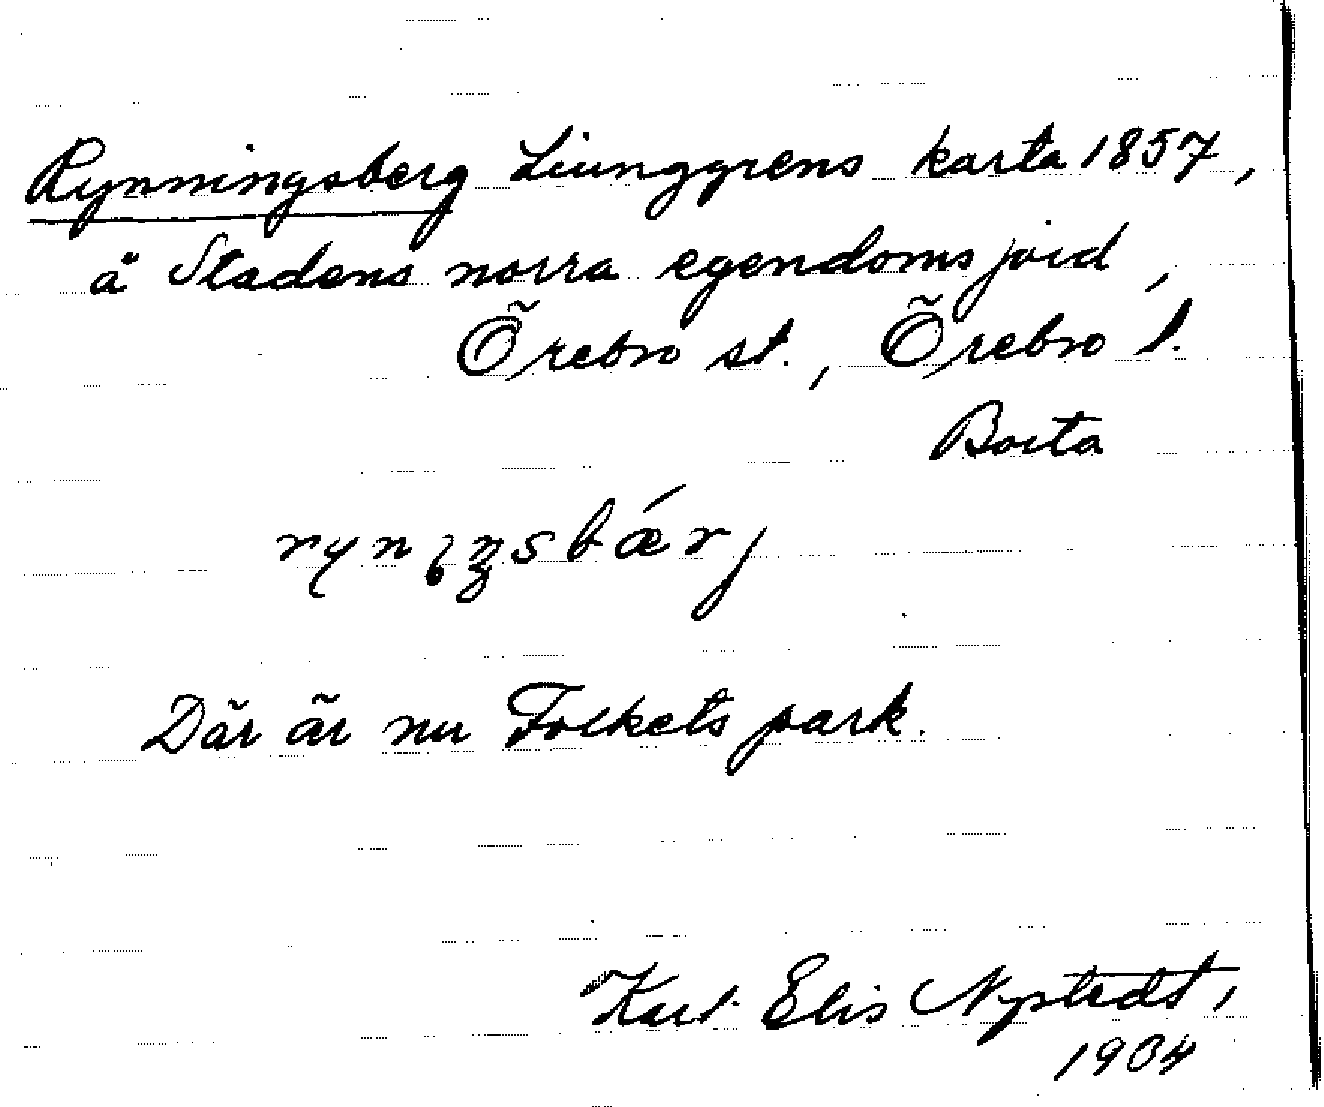 Rynningsberg Liunggrens karta 1857,
å Stadens norra egendomsjord,
Örebro st., Örebro l.
Borta
rynıŋsbǽrj
Där är nu Folkets park.
Karl Elis Nystedt,
1904